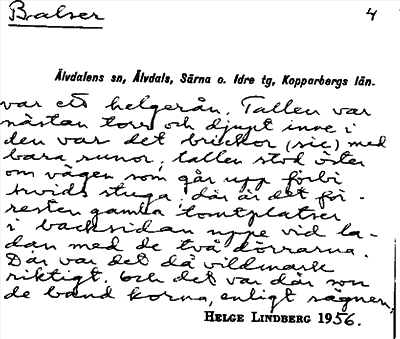 Balser 4
Älvdalens sn, Älvdals, Särna o. Idre tg, Kopparbergs län.
var ett helgerån. Tallen var
nästan torr och djupt inne i
den var det brickor (sic) med
bara runor, tallen stod öster
om vägen som går upp förbi
stuga, där är det för-
resten gamla tomtplatser
i backsidan uppe vid la-
dan med de två dörrarna.
Där var det då vildmark
riktigt. Och det var där som
de band korna, enligt sägnen,
HELGE LINDBERG 1956.